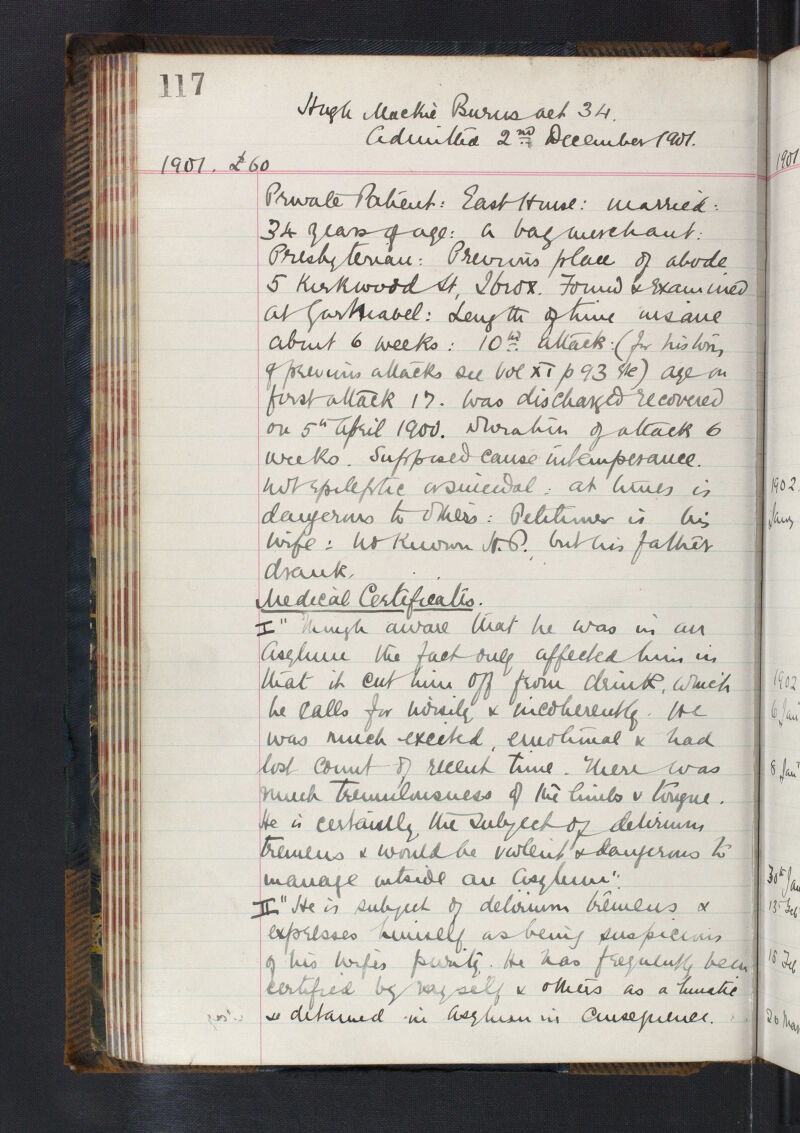 117
Hugh Mackie Burns aet 34.
Admitted 2nd December 1901.
1901. £60
Private Patient: East House: married:
34 years of age: a bag merchant:
Presbyterian: Previous place of abode
5 Kirkwood St, Ibrox. Found & Examined
at Gartnavel: Length of time insane
about 6 weeks: 10th attack: (for history
of previous attacks see Vol XI p 93 etc) age on
first attack 17. was discharged recovered
on 5th April 1900. Duration of attack 6
weeks. Supposed cause intemperance.
Not epileptic or suicidal: at times is
dangerous to others: Petitioner is his
wife: no known H.P., but his father
drank.
Medical Certificates.
I "Though aware that he was in an
Asylum the fact only affected him in
that it cut him off from drink, which
he calls for noisily & incoherently. He
was much excited, emotional & had
lost count of recent time. There was
much tremulousness of the limbs & tongue.
He is certainly the subject of delirium
tremens & would be violent & dangerous to
manage outside an Asylum".
II "He is subject of delirium tremens &
expresses himself as being suspicious
of his wife's purity. He has frequently been
certified by myself & others as a lunatic
& detained in Asylum in consequence.
1901
1902
Jany
1902
6 Jan
8 Jany
30th Jan
13 Feb
15 Feb
26 Mar